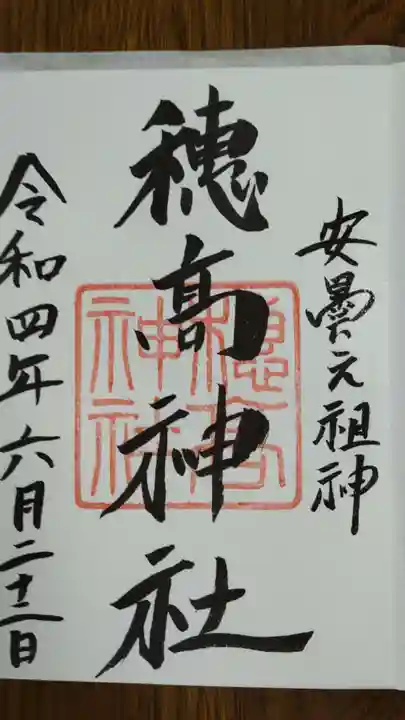 安曇元祖神
穂高神社
穂高神社
令和四年六月二十二日